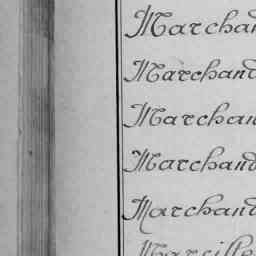 Marchan
Marchand
Marchan
Marchand
Marchand
Marcille